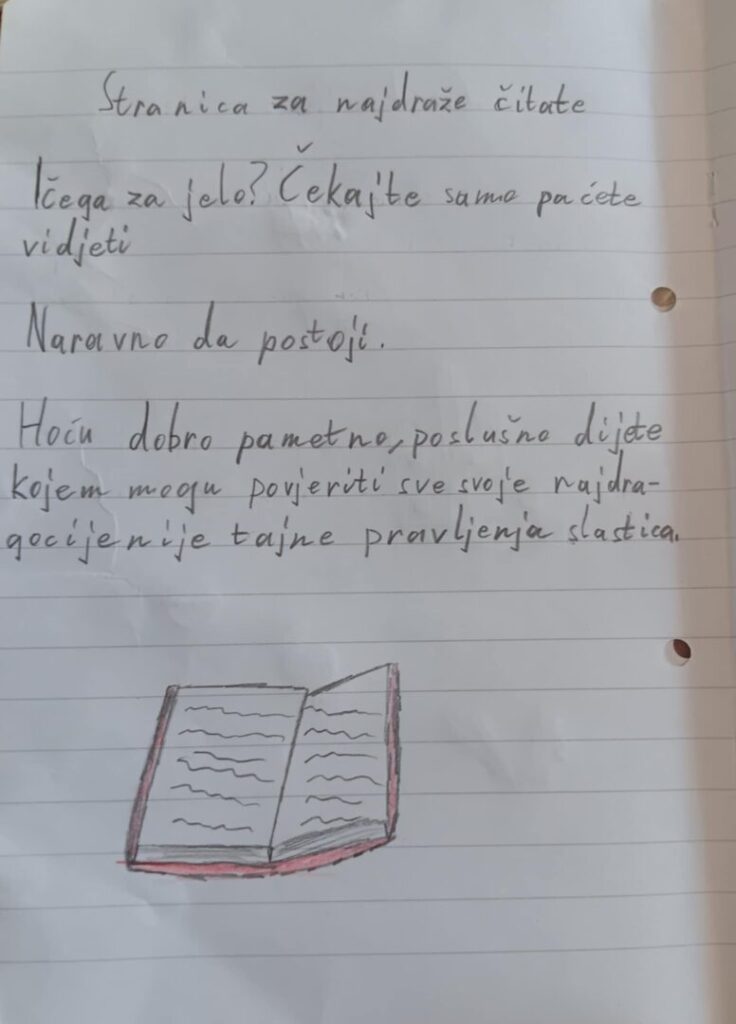 Stranica za najdraže čitate
Ičega za jelo? Čekajte samo pa ćete
vidjeti
Naravno da postoji.
Hoću dobro pametno, poslušno dijete
kojem mogu povjeriti sve svoje najdra-
gocijenije tajne pravljenja slastica.